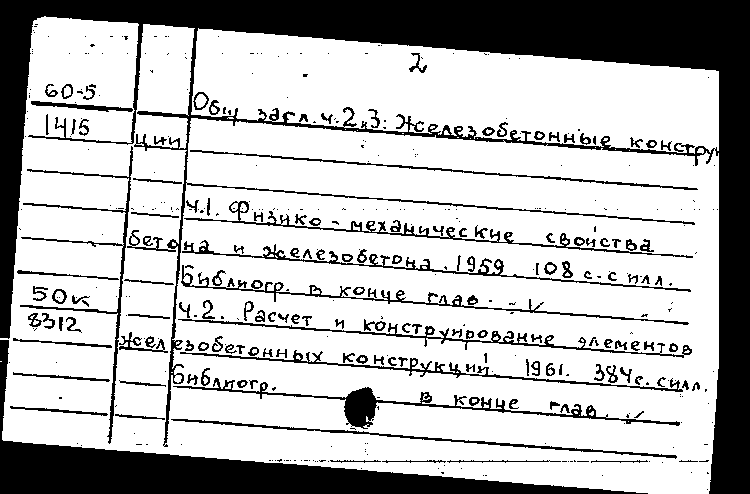 2
60-5
Общ загл. ч. 2,3: Железобетонные конструк
1415
ции
ч.1. Физико-механические свойства
бетона и железобетона. 1959. 108 с. с илл.
Библиогр. в конце глав.
50к
8312
ч.2. Расчет и конструирование элементов
железобетонных конструкций. 1961. 384 с. с илл.
Библиогр. в конце глав.